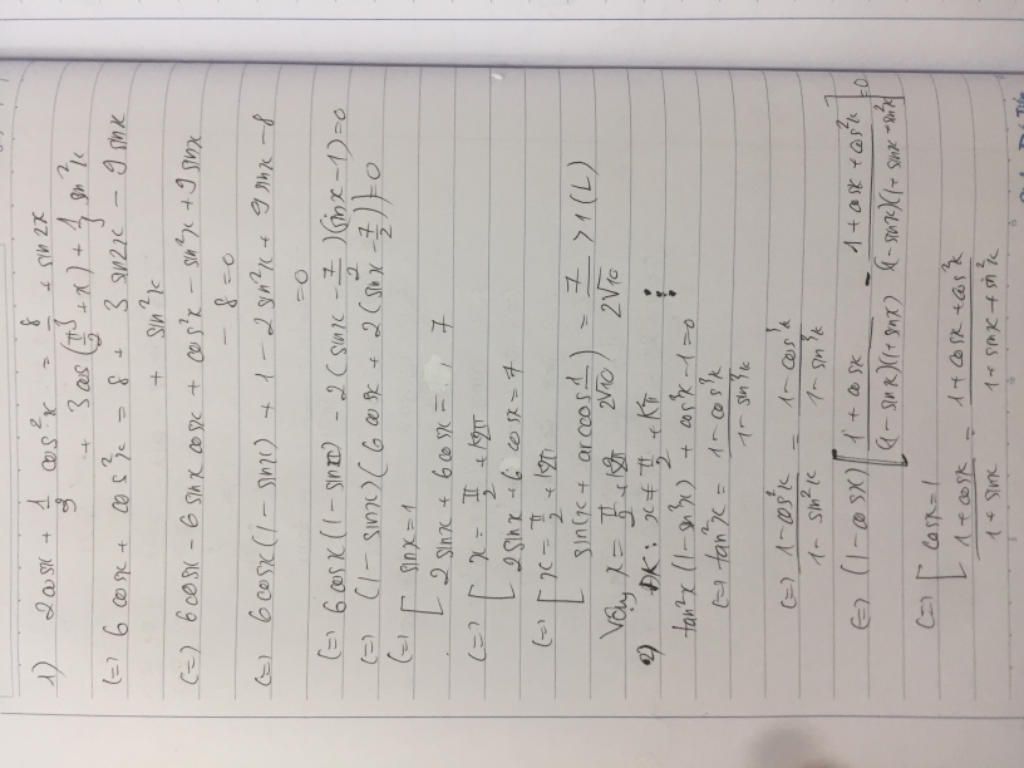 1) 2cosx + 1/3 cos²x = 8/3 + sin2x
+ 3cos(π/2 + x) + 1/3 sin²x
(=) 6cosx + cos²x = 8 + 3sin2x - 9sinx
+ sin²x
(=) 6cosx - 6sinxcosx + cos²x - sin²x + 9sinx
- 8 = 0
(=) 6cosx(1 - sinx) + 1 - 2sin²x + 9sinx - 8
= 0
(=) 6cosx(1 - sinx) - 2(sinx - 7/2)(sinx - 1) = 0
(=) (1 - sinx)(6cosx + 2(sinx - 7/2)) = 0
(=) [ sinx = 1
2sinx + 6cosx = 7
(=) [ x = π/2 + k2π
2sinx + 6cosx = 7
(=) [ x = π/2 + k2π
sin(x + arccos 1/2√10) = 7/2√10 > 1 (L)
Vậy x = π/2 + k2π
2) ĐK: x ≠ π/2 + kπ
tan²x(1 - sin³x) + cos³x - 1 = 0
(=) tan²x = 1 - cos³x / 1 - sin³x
(=) 1 - cos²x / 1 - sin²x = 1 - cos³x / 1 - sin³x
(=) (1 - cosx) [ 1 + cosx / (1 - sinx)(1 + sinx) - 1 + cosx + cos²x / (1 - sinx)(1 + sinx + sin²x) ] = 0
(=) [ cosx = 1
1 + cosx / 1 + sinx = 1 + cosx + cos²x / 1 + sinx + sin²x